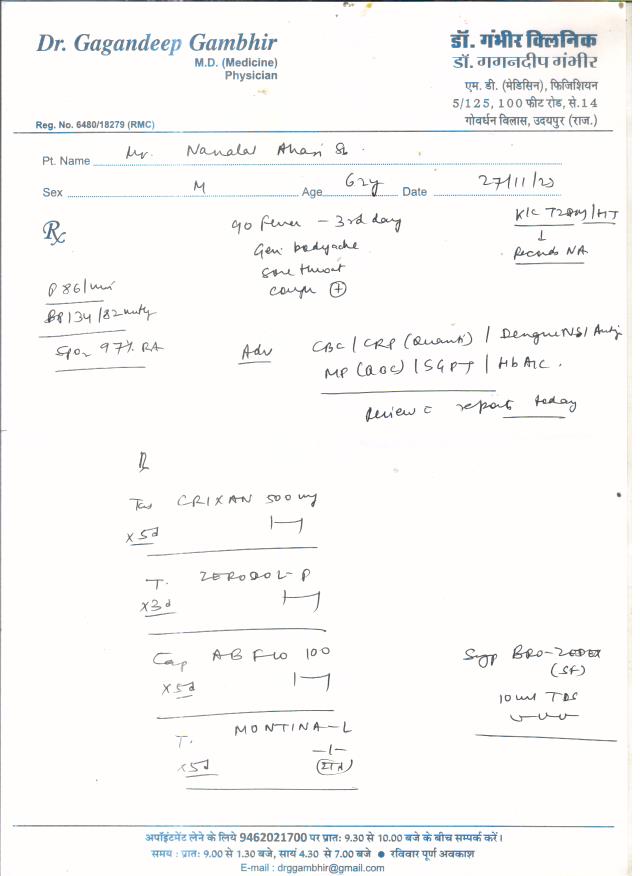 Dr. Gagandeep Gambhir
M.D. (Medicine)
Physician
Reg. No. 6480/18279 (RMC)
डॉ. गंभीर क्लिनिक
डॉ. गगनदीप गंभीर
एम. डी. (मेडिसिन), फिजिशियन
5/125, 100 फीट रोड, से.14
गोवर्धन विलास, उदयपुर (राज.)
Pt. Name Mr. Nanalal Ahari
Sex M Age 62y Date 27/11/23
Rx
K/C T2DM/HT
↓
Records NA
fever - 3rd day
Gen. bodyache
sore throat
cough (+)
P 86/min
BP 134/82 mmHg
SpO2 97% RA
Adv CBC / CRP (Quanti) / Dengue NS1 Antig
MP (QBC) / SGPT / HbA1C.
Review c reports today
Rx
Tab CRIXAN 500 mg
x 5d
T. ZERODOL-P
x3d
Cap AB Flo 100
x5d
T. MONTINA-L
-1-
x5d
Syp BRO-ZEDEX
(SF)
10 ml TDS
अपॉइंटमेंट लेने के लिये 9462021700 पर प्रात: 9.30 से 10.00 बजे के बीच सम्पर्क करें।
समय : प्रात: 9.00 से 1.30 बजे, सायं 4.30 से 7.00 बजे ● रविवार पूर्ण अवकाश
E-mail : drggambhir@gmail.com